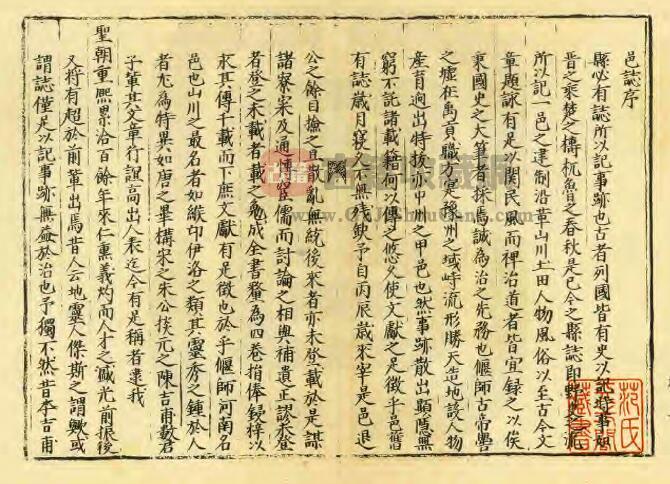 邑誌序
縣必有誌所以記事跡也古者列國皆有史以記時事廟
晉之乘楚之檮杌魯之春秋是已今之縣誌即
所以記一邑之建制沿革山川土田人物風俗以至古今文
章題詠有足以関民風而裨治道者皆宜録之以俟
秉國史之大筆者採焉誠為治之先務也偃師古帝嚳
之墟在禹貢職方寔豫州之域峙流形勝天造地設人物
産育迥出特拔亦中州之甲邑也然事跡散出顯隱無
窮不託諸載籍何以傳之悠久使文獻之足徵乎邑舊
有誌歲月寖久不無殘缺予自丙辰歲來宰是邑退
公之餘目撿之且散亂無統後來者亦未登載於是謀
諸寮寀及通博宿儒而討論之相與補遺正謬未登
者登之未載者載之免成全書釐為四卷捐俸鋟梓以
永其傳千載而下庶文獻有足徵也於乎偃師河南名
邑也山川之最名者如緱邙伊洛之類其靈秀之鍾於人
者尤為特異如唐之畢構宋之朱公掞元之陳吉甫數君
子軰其文章行誼高出人表迄今有足稱者逮我
聖朝重熙累洽百餘年來仁熏義灼而人才之盛光前振後
又將有超於前軰出焉昔人云地靈人傑斯之謂歟或
謂誌僅足以記事跡無益於治也予獨不然昔李吉甫
范氏
藏書